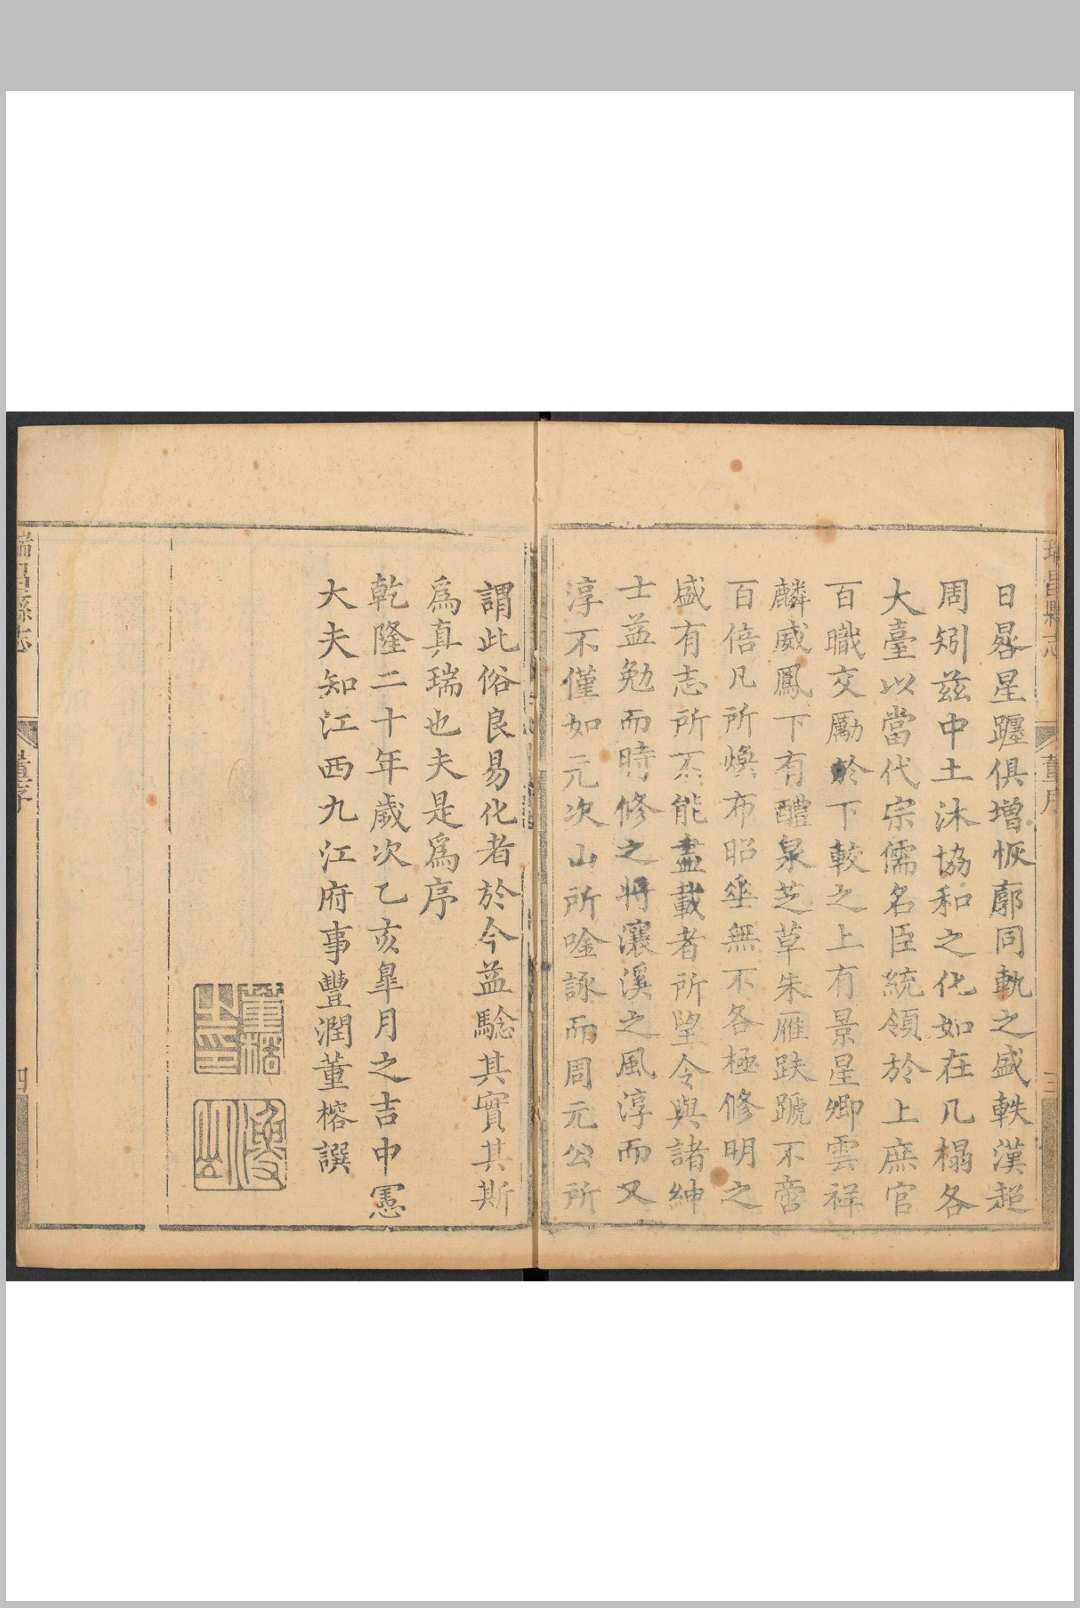 瑞昌縣志
董序
三
日晷星躔俱增恢廓同軌之盛軼漢超
周矧茲中土沐協和之化如在几榻各
大臺以當代宗儒名臣統領於上庶官
百職交勵於下較之上有景星卿雲祥
麟威鳳下有醴泉芝草朱雁趺蹏不啻
百倍凡所煥布昭垂無不各極修明之
盛有志所不能盡載者所望令與諸紳
士益勉而時修之將瀼溪之風淳而又
淳不僅如元次山所唫詠而周元公所
謂此俗良易化者於今益騐其實其斯
爲真瑞也夫是爲序
乾隆二十年歲次乙亥皐月之吉中憲
大夫知江西九江府事豐潤董榕譔
董榕之印
漁山
瑞昌縣志
董序
四